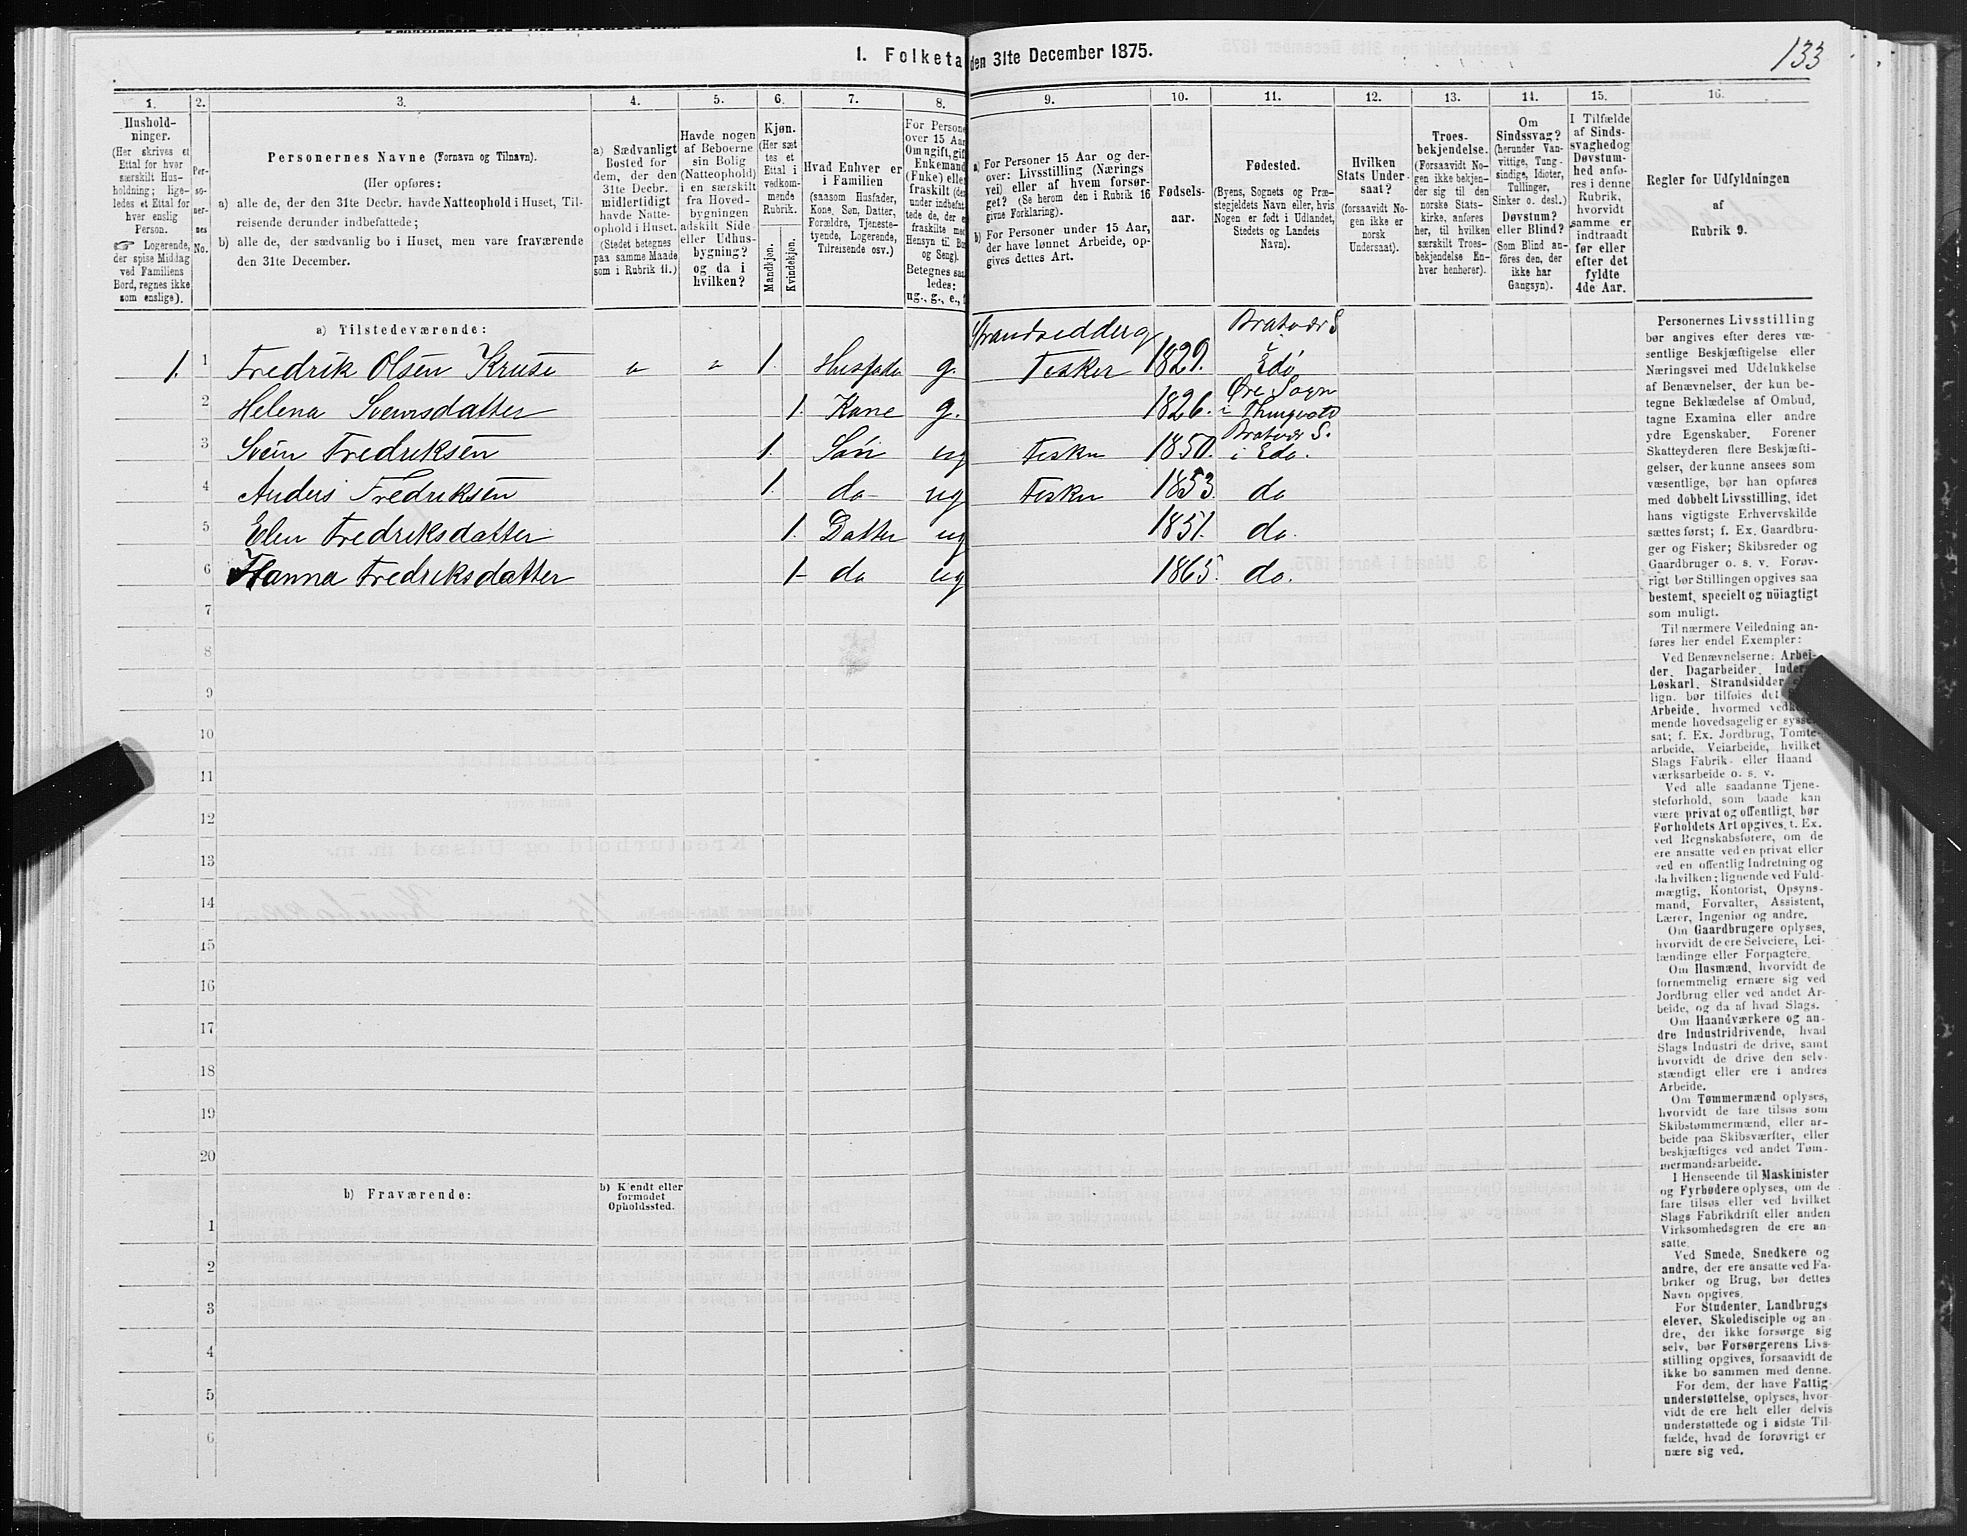 133
1. Folketa
den 31te December 1875.
1.
2.
3.
4.
5.
6.
7.
8.
9.
10.
11.
12.
13.
14.
15.
16.
Hushold-
ninger.
(Her skrives et
Ettal for hver
særskilt Hus-
holdning; lige-
ledes et Ettal for
hver enslig
Person.
☞ Logerende,
der spise Middag
ved Familiens
Bord, regnes ikke
som enslige).
Per-
so-
ner-
nes
No.
Personernes Navne (Fornavn og Tilnavn).
(Her opføres:
a) alle de, der den 31te Decbr. havde Natteophold i Huset, Til-
reisende derunder indbefattede;
b) alle de, der sædvanlig bo i Huset, men vare fraværende
den 31te December.
a) Sædvanligt
Bosted for
dem, der den
31te Decbr.
midlertidigt
havde Natte-
ophold i Huset.
(Stedet betegnes
paa samme Maade
som i Rubrik 11.)
Havde nogen
af Beboerne
sin Bolig
(Natteophold)
i en særskilt
fra Hoved-
bygningen
adskilt Side-
eller Udhus-
bygning?
og da i
hvilken?
Kjøn.
(Her sæt-
tes et
Ettal i
vedkom-
mende
Rubrik.
Mandkjøn.
Kvindekjøn.
Hvad Enhver er
i Familien
(saasom Husfader,
Kone, Søn, Datter,
Forældre, Tjeneste-
tyende, Logerende,
Tilreisende osv.)
For Persone
over 15 Aar
Om ugift, gift
Enkemand
(Enke) eller
fraskilt (der
under indbefat-
tede de, der er
fraskilte med
Hensyn til Bo
og Seng).
Betegnes saa
ledes:
ug., g., e., f
a) For Personer 15 Aar og der-
over: Livsstilling (Nærings-
vei) eller af hvem forsør-
get? (Se herom den i Rubrik 16
givne Forklaring).
b) For Personer under 15 Aar,
der have lønnet Arbeide, op-
gives dettes Art.
Fødsels-
aar.
Fødested.
(Byens, Sognets og Præ-
stegjeldets Navn eller, hvis
Nogen er født i Udlandet,
Stedets og Landets
Navn).
Hvilken
Stats Under-
saat?
(forsaavidt No-
gen ikke er
norsk
Undersaat).
Troes-
bekjendelse.
(Forsaavidt No-
gen ikke bekjen-
der sig til den
norske Stats-
kirke, anføres
her, til hvilken
særskilt Troes-
bekjendelse En-
hver henhører).
Om
Sindssvag?
(herunder Van-
vittige, Tung-
sindige, Idioter,
Tullinger,
Sinker o. desl.)
Døvstum?
eller Blind?
(Som Blind an-
føres den, der
ikke har
Gangsyn).
I Tilfælde
af Sinds-
svaghed og
Døvstum-
hed anfø-
res i denne
Rubrik,
hvorvidt
samme er
indtraadt
før eller
efter det
fyldte
4de Aar.
Regler for Udfyldningen
af
Rubrik 9.
a) Tilstedeværende:
Strandsidder og Bratvær S
1. 1 Fredrik Olsen Kruse " " 1. Husfader g. Fisker 1829. i Edø
Øre Sogn
2 Helena Svensdatter 1. Kone g. 1826. i
Bratvær S.
3 Svein Fredriksen 1. Søn ug Fisker 1850. i Edø.
4 Anders Fredriksen 1. do ug Fisker 1853. do
5 Elen Fredriksdatter 1. Datter ug 1851. do.
6 Hanna Fredriksdatter 1 do ug 1865. do.
7
8
9
10
11
12
13
14
15
16
17
18
19
20
b) Fraværende:
b) Kjendt eller
formodet
Opholdssted.
1
2
3
4
5
6
Personernes Livsstilling
bør angives efter deres væ-
sentlige Beskjæftigelse eller
Næringsvei med Udelukkelse
af Benævnelser, der kun be-
tegne Beklædelse af Ombud,
tagne Examina eller andre
ydre Egenskaber. Forener
Skatteyderen flere Beskjæfti-
gelser, der kunne ansees som
væsentlige, bør han opføres
med dobbelt Livsstilling, idet
hans vigtigste Erhvervskilde
sættes først; f. Ex. Gaardbru-
ger og Fisker; Skibsreder og
Gaardbruger o. s. v. Forøv-
rigt bør Stillingen opgives saa
bestemt, specielt og nöiagtigt
som muligt.
Til nærmere Veiledning an-
føres her endel Exempler:
Ved Benævnelserne: Arbei-
der, Dagarbeider, Inder
Løskarl, Strandsidder
lign. bør tilføies det
Arbeide, hvormed vedk
mende hovedsagelig er syssel
sat; f. Ex. Jordbrug, Tomte-
arbeide, Veiarbeide, hvilket
Slags Fabrik- eller Haand
værksarbeide o. s. v.
Ved alle saadanne Tjene-
steforhold, som baade kan
være privat og offentligt, bør
Forholdets Art opgives, t. Ex.
ved Regnskabsførere, om de
ere ansatte ved en privat eller
ved en offentlig Indretning og
da hvilken; lignende ved Fuld-
mægtig, Kontorist, Opsyns-
mand, Forvalter, Assistent,
Lærer, Ingeniør og andre.
Om Gaardbrugere oplyses,
hvorvidt de ere Selveiere, Lei-
lændinge eller Forpagtere.
Om Husmænd, hvorvidt de
fornemmelig ernære sig ved
Jordbrug eller ved andet Ar-
beide, og da af hvad Slags.
Om Haandværkere og an-
dre Industridrivende, hvad
Slags Industri de drive, samt
hvorvidt de drive den selv-
stændigt eller ere i andres
Arbeide.
Om Tømmermænd oplyses,
hvorvidt de fare tilsøs som
Skibstømmermænd, eller ar-
beide paa Skibsværfter, eller
beskjæftiges ved andet Tøm-
mermandsarbeide.
I Henseende til Maskinister
og Fyrbødere oplyses, om de
fare tilsøs eller ved hvilket
Slags Fabrikdrift eller anden
Virksomhedsgren de ere an-
satte.
Ved Smede, Snedkere og
andre, der ere ansatte ved Fa-
briker og Brug, bør dettes
Navn opgives.
For Studenter, Landbrugs
elever, Skoledisciple og an-
dre, der ikke forsørge sig
selv, bør Forsørgerens Livs-
stilling opgives, forsaavidt de
ikke bo sammen med denne.
For dem, der have Fattig-
understøttelse, oplyses, hvor-
vidt de ere helt eller delvis
understøttede og i sidste Til-
fælde, hvad de forøvrigt er
nære sig ved.